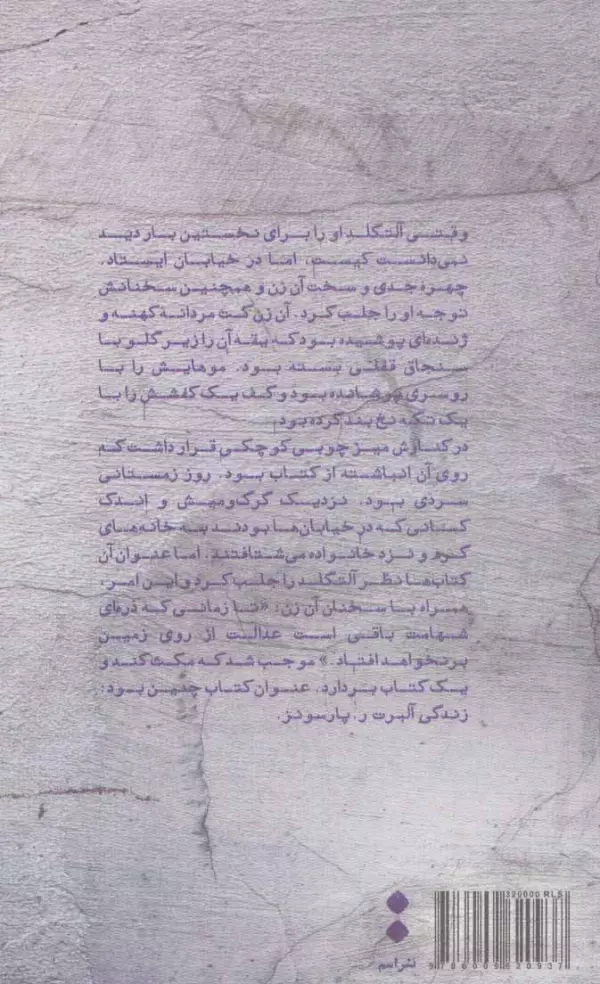 وقتی آلتگلد او را برای نخستین بار دید
نمی‌دانست کیست، اما در خیابان ایستاد.
چهره جدی و سخت آن زن و همچنین سخنانش
توجه او را جلب کرد. آن زن کت مردانهٔ کهنه و
ژنده‌ای پوشیده بود که یقه آن را زیر گلو با
سنجاق قفلی بسته بود. موهایش را با
روسری پوشانده بود و کف یک کفشش را با
یک تکه نخ بند کرده بود.
در کنارش میز چوبی کوچکی قرار داشت که
روی آن انباشته از کتاب بود. روز زمستانی
سردی بود. نزدیک گرگ‌ومیش و اندک
کسانی که در خیابان‌ها بودند به خانه‌های
گرم و نزد خانواده می‌شتافتند. اما عنوان آن
کتاب‌ها نظر آلتگلد را جلب کرد و این امر،
همراه با سخنان آن زن: «تا زمانی که ذره‌ای
شهامت باقی است عدالت از روی زمین
برنخواهد افتاد.» موجب شد که مکث کند و
یک کتاب بردارد. عنوان کتاب چنین بود:
زندگی آلبرت ر. پارسونز.
320000 RLS
نشر اسم
9 786009 520937